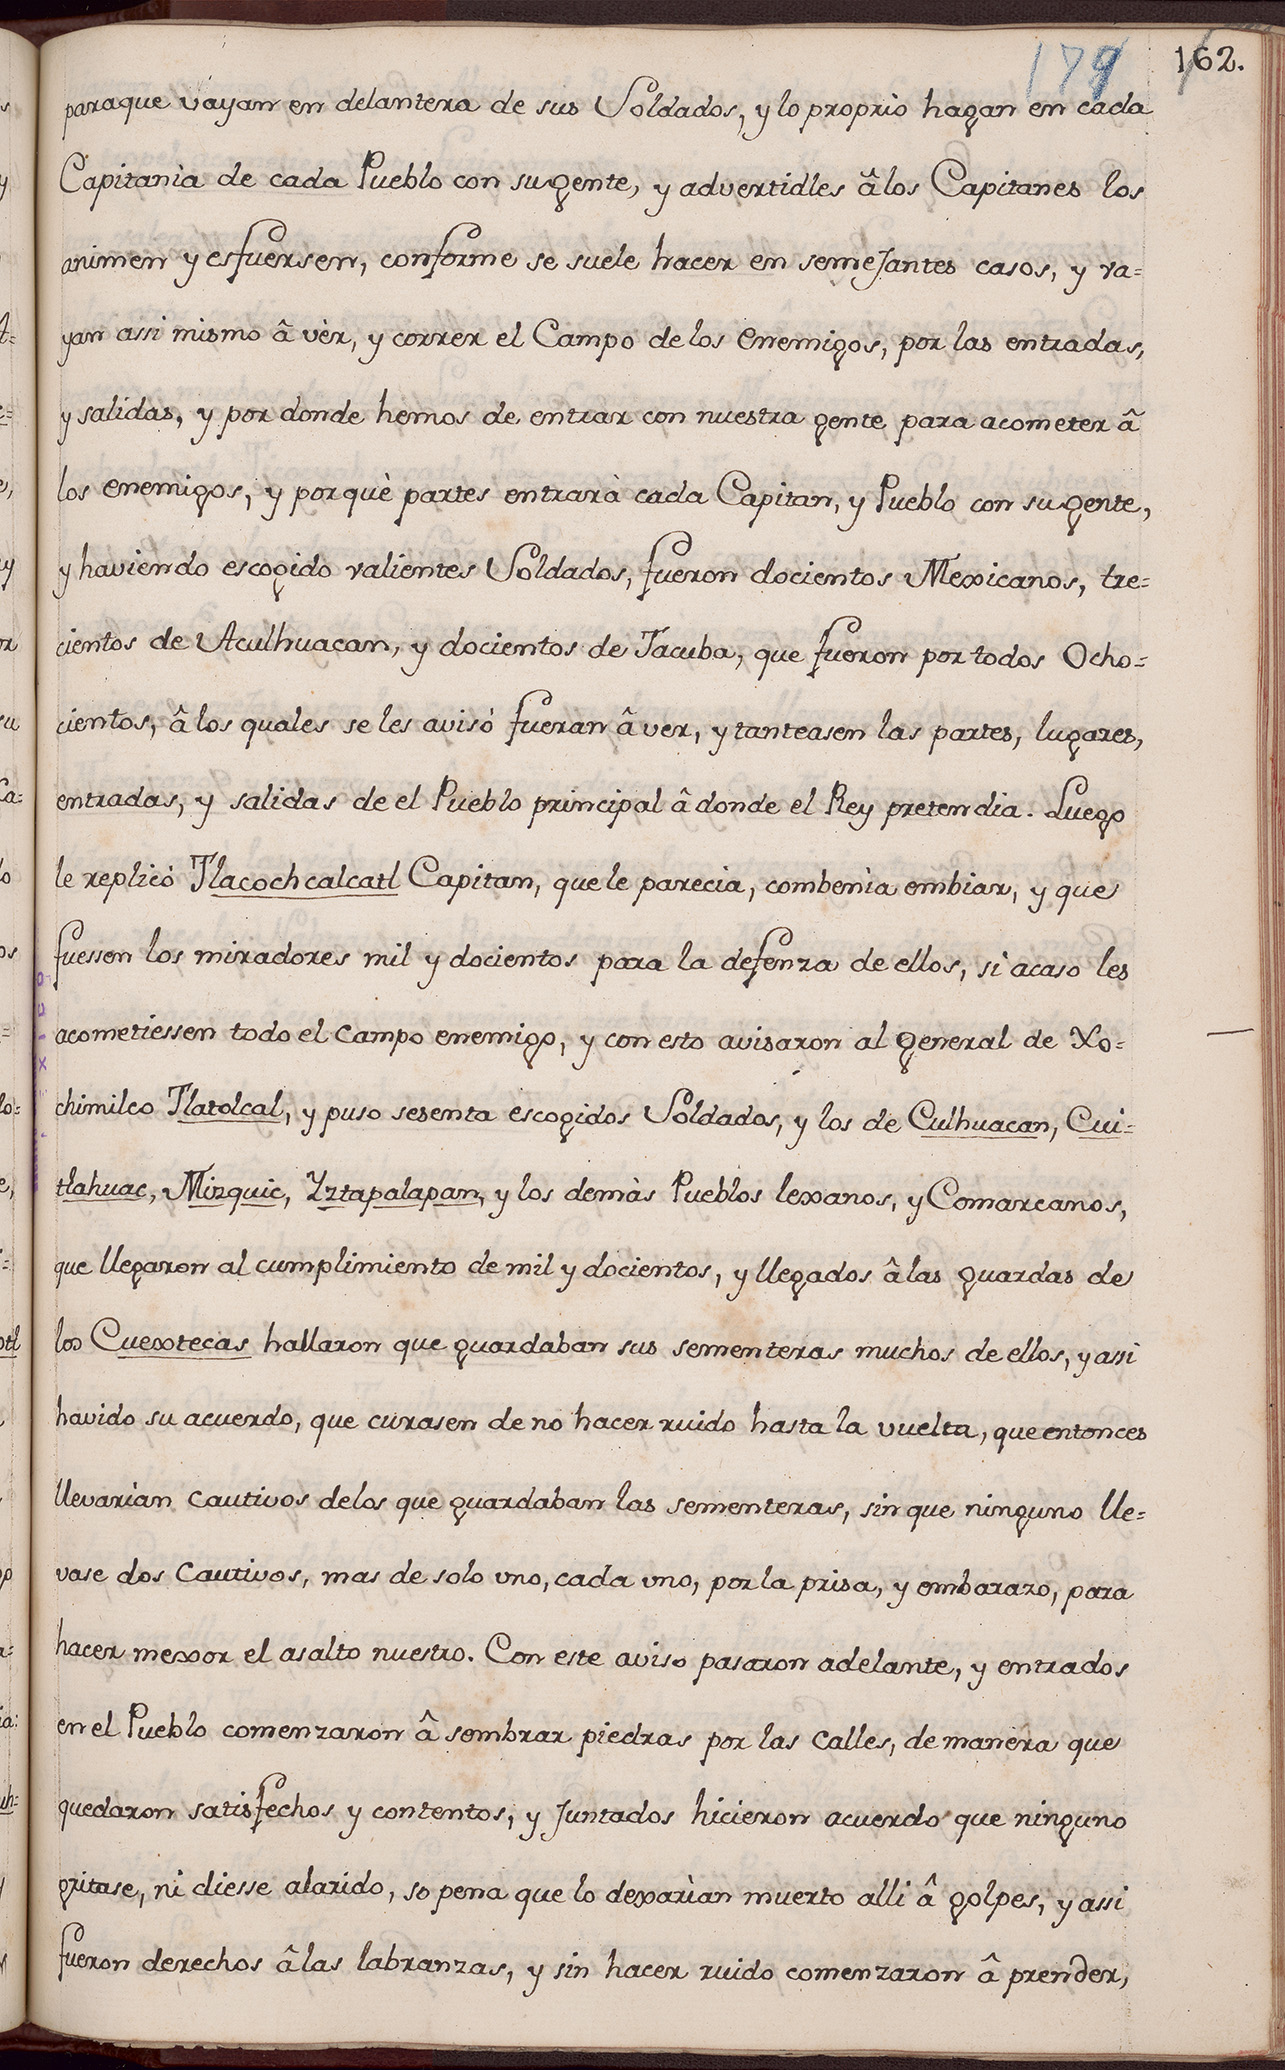 179 162.
paraque vayan en delantera de sus Soldados, y lo proprio hagan en cada
Capitanìa de cada Pueblo con su gente, y advertidles â los Capitanes los
animen y esfuersen, conforme se suele hacer en semejantes casos, y va=
yan assi mismo â vèr, y correr el Campo de los enemigos, por las entradas,
y salidas, y por donde hemos de entrar con nuestra gente para acometer â
los enemigos, y por què partes entrarà cada Capitan, y Pueblo con su gente,
y haviendo escogido valientes Soldados, fueron docientos Mexicanos, tre=
cientos de Aculhuacan, y docientos de Tacuba, que fueron por todos Ocho=
cientos, â los quales se les avisò fueran â ver, y tanteasen las partes, lugares,
entradas, y salidas de el Pueblo principal â donde el Rey pretendia. Luego
le replicò Tlacochcalcatl Capitan, que le parecia, combenìa embiar, y que
fuessen los miradores mil y docientos para la defenza de ellos, si acaso les
acometiessen todo el campo enemigo, y con esto avisaron al general de Xo=
chimilco Tlatolcal, y puso sesenta escogidos Soldados, y los de Culhuacan, Cui=
tlahuac, Mizquic, Yztapalapan, y los demàs Pueblos lexanos, y Comarcanos,
que llegaron al cumplimiento de mil y docientos, y llegados â las guardas de
los Cuextecas hallaron que guardaban sus sementeras muchos de ellos, y assi
havido su acuerdo, que curasen de no hacer ruido hasta la vuelta, que entonces
llevarian cautivos de los que guardaban las sementeras, sin que ninguno lle=
vase dos Cautivos, mas de solo uno, cada uno, por la prisa, y embarazo, para
hacer mexor el asalto nuestro. Con este aviso pasaron adelante, y entrados
en el Pueblo comenzaron â sembrar piedras por las calles, de manera que
quedaron satisfechos y contentos, y juntados hicieron acuerdo que ninguno
gritase, ni diesse alarido, so pena que lo dexarìan muerto alli â golpes, y assi
fueron derechos â las labranzas, y sin hacer ruido comenzaron â prender,